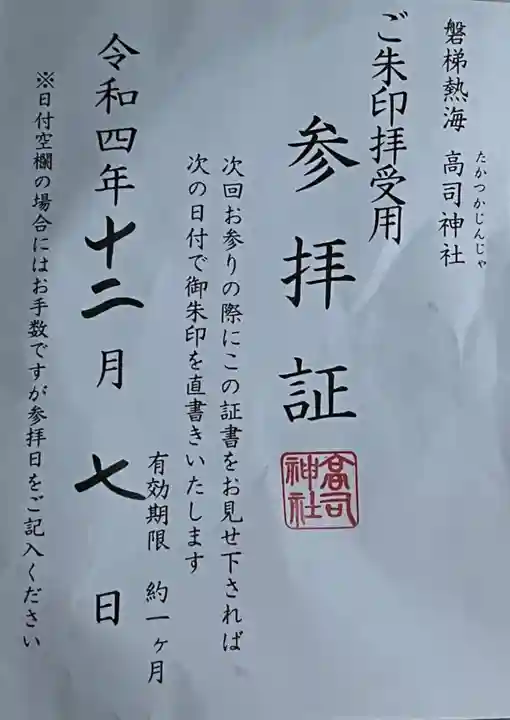 磐梯熱海 高司神社
たかつかじんじゃ
ご朱印拝受用
参拝証
高司
神社
次回お参りの際にこの証書をお見せ下されば
次の日付で御朱印を直書きいたします
有効期限 約一ヶ月
令和四年十二月七日
※日付空欄の場合にはお手数ですが参拝日をご記入ください